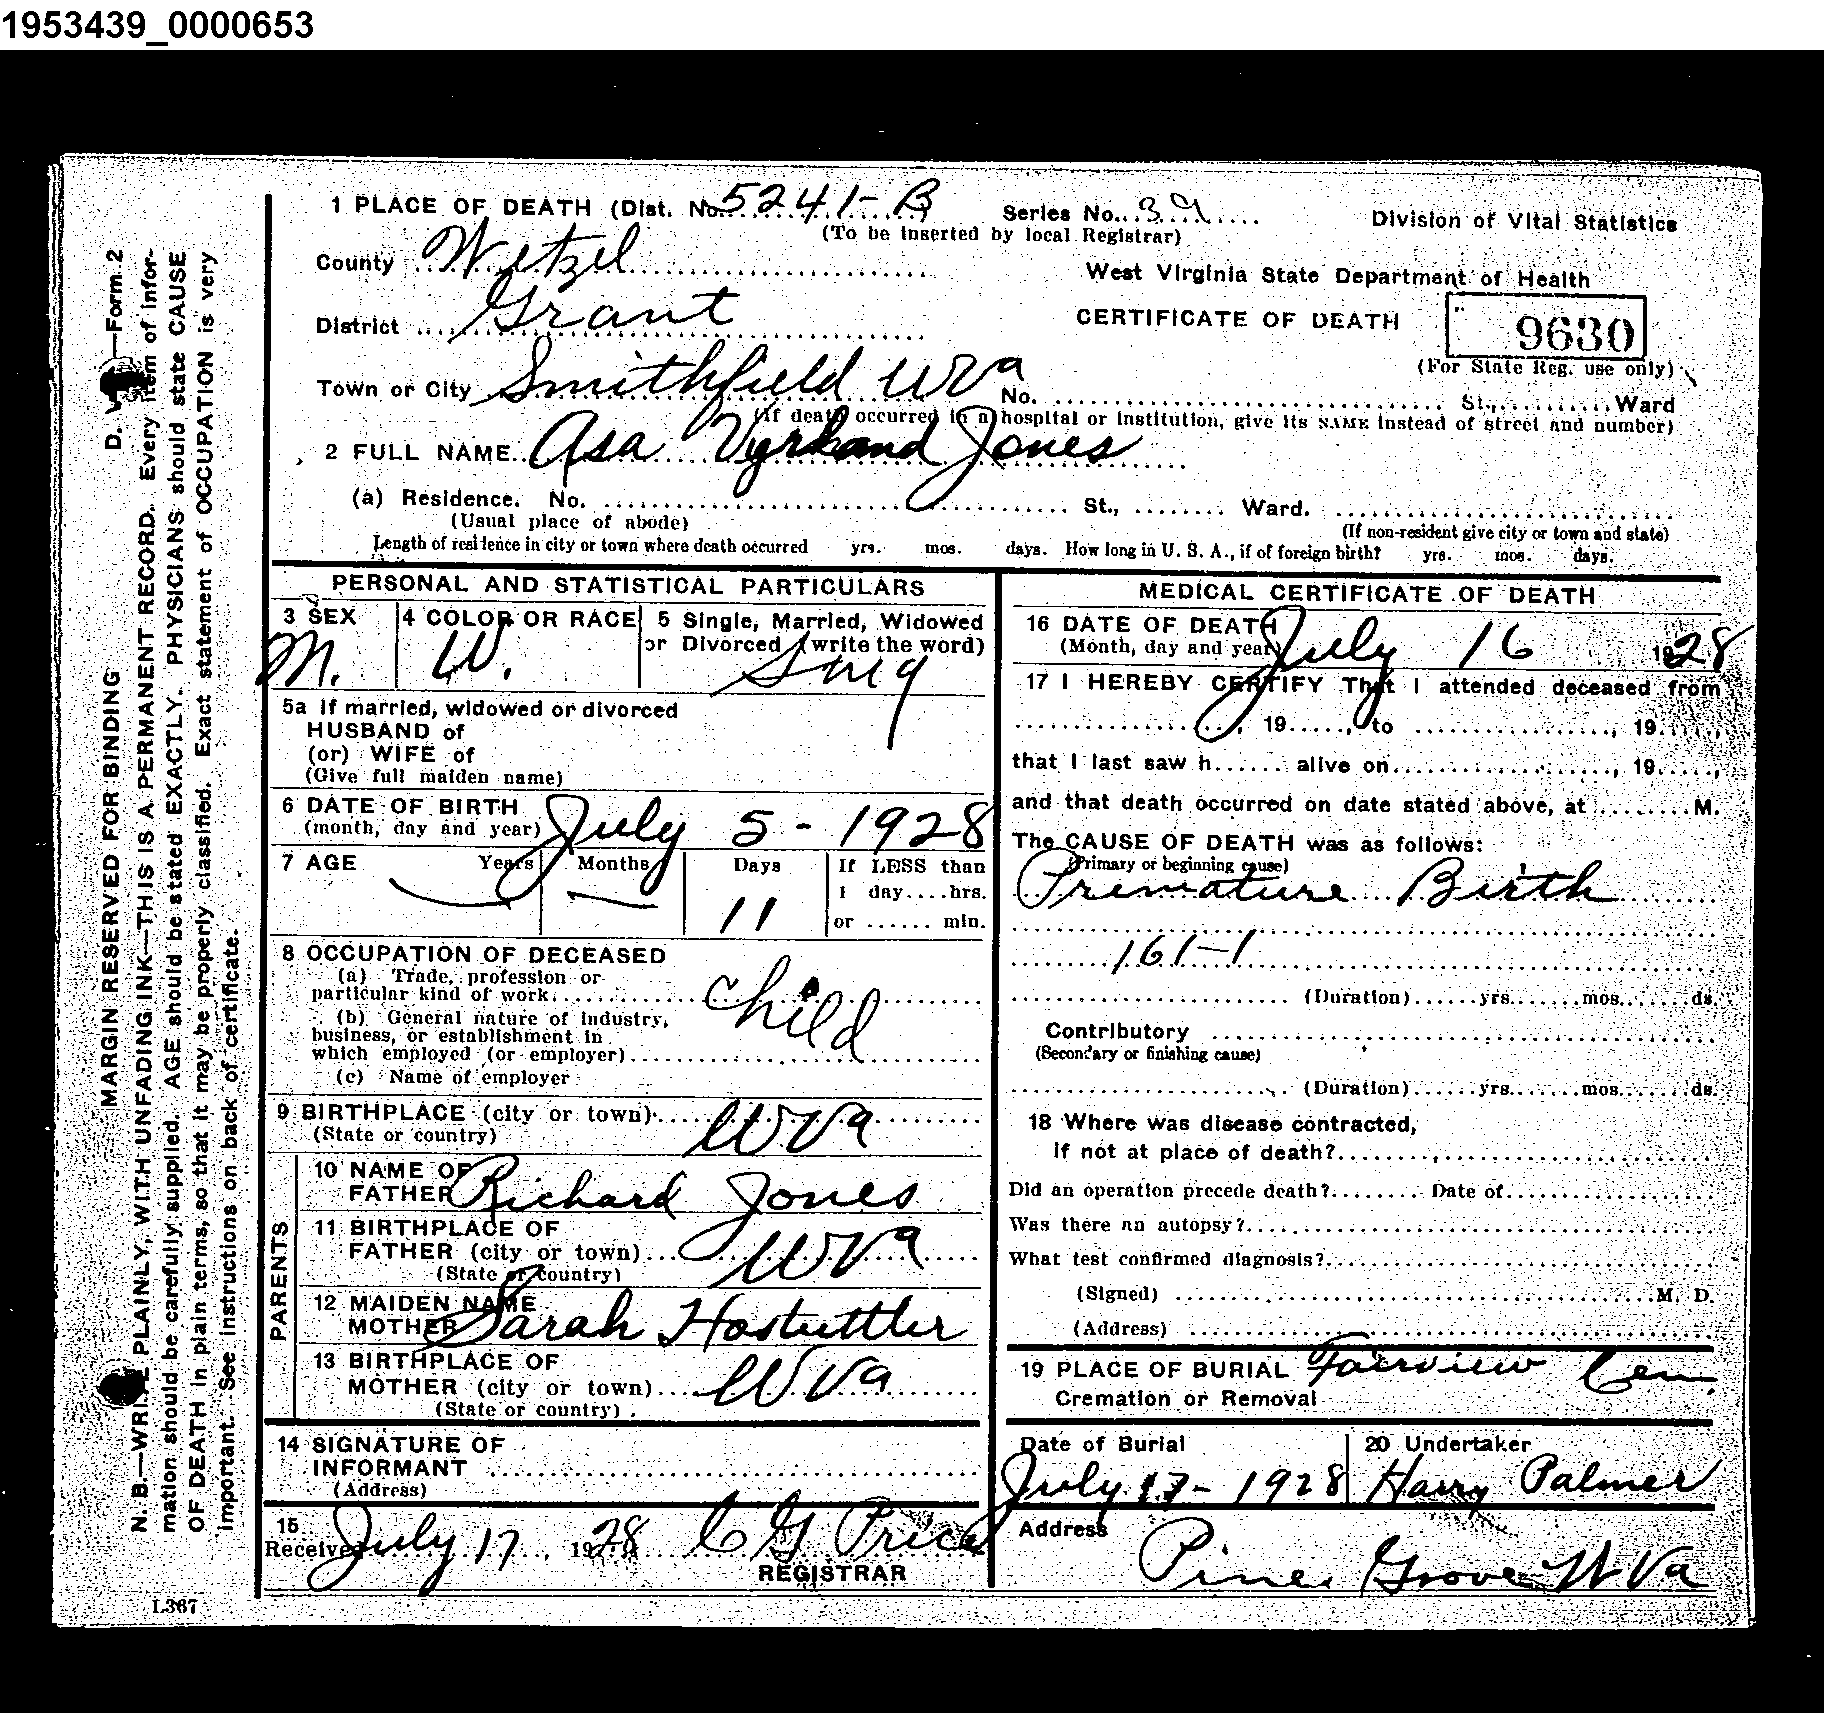 1953439_0000653
1 PLACE OF DEATH (Dist. No. 5241-B Series No. 39 Division of Vital Statistics
(To be inserted by local Registrar)
County Wetzel
West Virginia State Department of Health
District Grant
CERTIFICATE OF DEATH 9630
(For State Reg. use only)
Town or City Smithfield WVa No. St., Ward
(If death occurred in a hospital or institution, give its NAME instead of street and number)
2 FULL NAME Asa Jones
(a) Residence. No. St., Ward.
(Usual place of abode) (If non-resident give city or town and state)
Length of residence in city or town where death occurred yrs. mos. days. How long in U. S. A., if of foreign birth? yrs. mos. days.
PERSONAL AND STATISTICAL PARTICULARS
3 SEX 4 COLOR OR RACE 5 Single, Married, Widowed
or Divorced (write the word)
M. W. Sing
5a If married, widowed or divorced
HUSBAND of
(or) WIFE of
(Give full maiden name)
6 DATE OF BIRTH
(month, day and year) July 5 - 1928
7 AGE Years Months Days If LESS than
1 day....hrs.
11
or ...... min.
8 OCCUPATION OF DECEASED
(a) Trade, profession or
particular kind of work Child
(b) General nature of industry,
business, or establishment in
which employed (or employer)
(c) Name of employer
9 BIRTHPLACE (city or town) WVa
(State or country)
PARENTS
10 NAME OF
FATHER Richard Jones
11 BIRTHPLACE OF
FATHER (city or town) WVa
(State or country)
12 MAIDEN NAME
MOTHER Sarah Hostuttler
13 BIRTHPLACE OF
MOTHER (city or town) WVa
(State or country)
14 SIGNATURE OF
INFORMANT
(Address)
15
Received July 17, 1928 C G Price
REGISTRAR
MEDICAL CERTIFICATE OF DEATH
16 DATE OF DEATH
(Month, day and year) July 16 1928
17 I HEREBY CERTIFY That I attended deceased from
, 19....., to , 19.....,
that I last saw h...... alive on , 19.....,
and that death occurred on date stated above, at ........M.
The CAUSE OF DEATH was as follows:
(Primary or beginning cause)
Premature Birth
161-1
(Duration)......yrs.......mos.......ds.
Contributory
(Secondary or finishing cause)
(Duration)......yrs.......mos.......ds.
18 Where was disease contracted,
if not at place of death?
Did an operation precede death? Date of
Was there an autopsy?
What test confirmed diagnosis?
(Signed) M. D.
(Address)
19 PLACE OF BURIAL Fairview Cem.
Cremation or Removal
Date of Burial 20 Undertaker
July 17 - 1928 Harry Palmer
Address
Pine Grove W Va
D. —Form 2
MARGIN RESERVED FOR BINDING
N. B.—WRITE PLAINLY, WITH UNFADING INK—THIS IS A PERMANENT RECORD. Every item of infor-
mation should be carefully supplied. AGE should be stated EXACTLY. PHYSICIANS should state CAUSE
OF DEATH in plain terms, so that it may be properly classified. Exact statement of OCCUPATION is very
important. See instructions on back of certificate.
L367